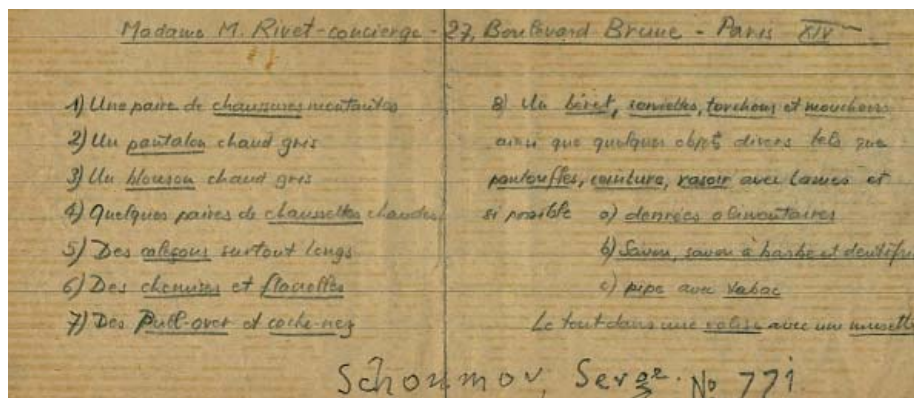 Madame M. Rivet-concierge - 27, Boulevard Brune - Paris XIV
1) Une paire de chaussures montantes
2) Un pantalon chaud gris
3) Un blouson chaud gris
4) Quelques paires de chaussettes chaudes
5) Des caleçons surtout longs
6) Des chemises et flanelles
7) Des Pull-over et cache-nez
8) Un béret, serviettes, torchons et mouchoirs
ainsi que quelques objets divers tels que
pantouffles, ceinture, rasoir avec lames et
si possible a) denrées alimentaires
b) Savon, savon à barbe et dentifri
c) pipe avec tabac
Le tout dans une valise avec une musette
Schoumov, Serge. No 771